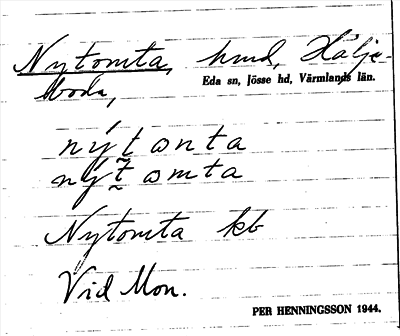 Nytomta, hmd, Hälje-
boda,
Eda sn, Jösse hd, Värmlands län.
nýtɷnta
nýtɷmta
Nytomta kb
Vid Mon.
PER HENNINGSSON 1944.